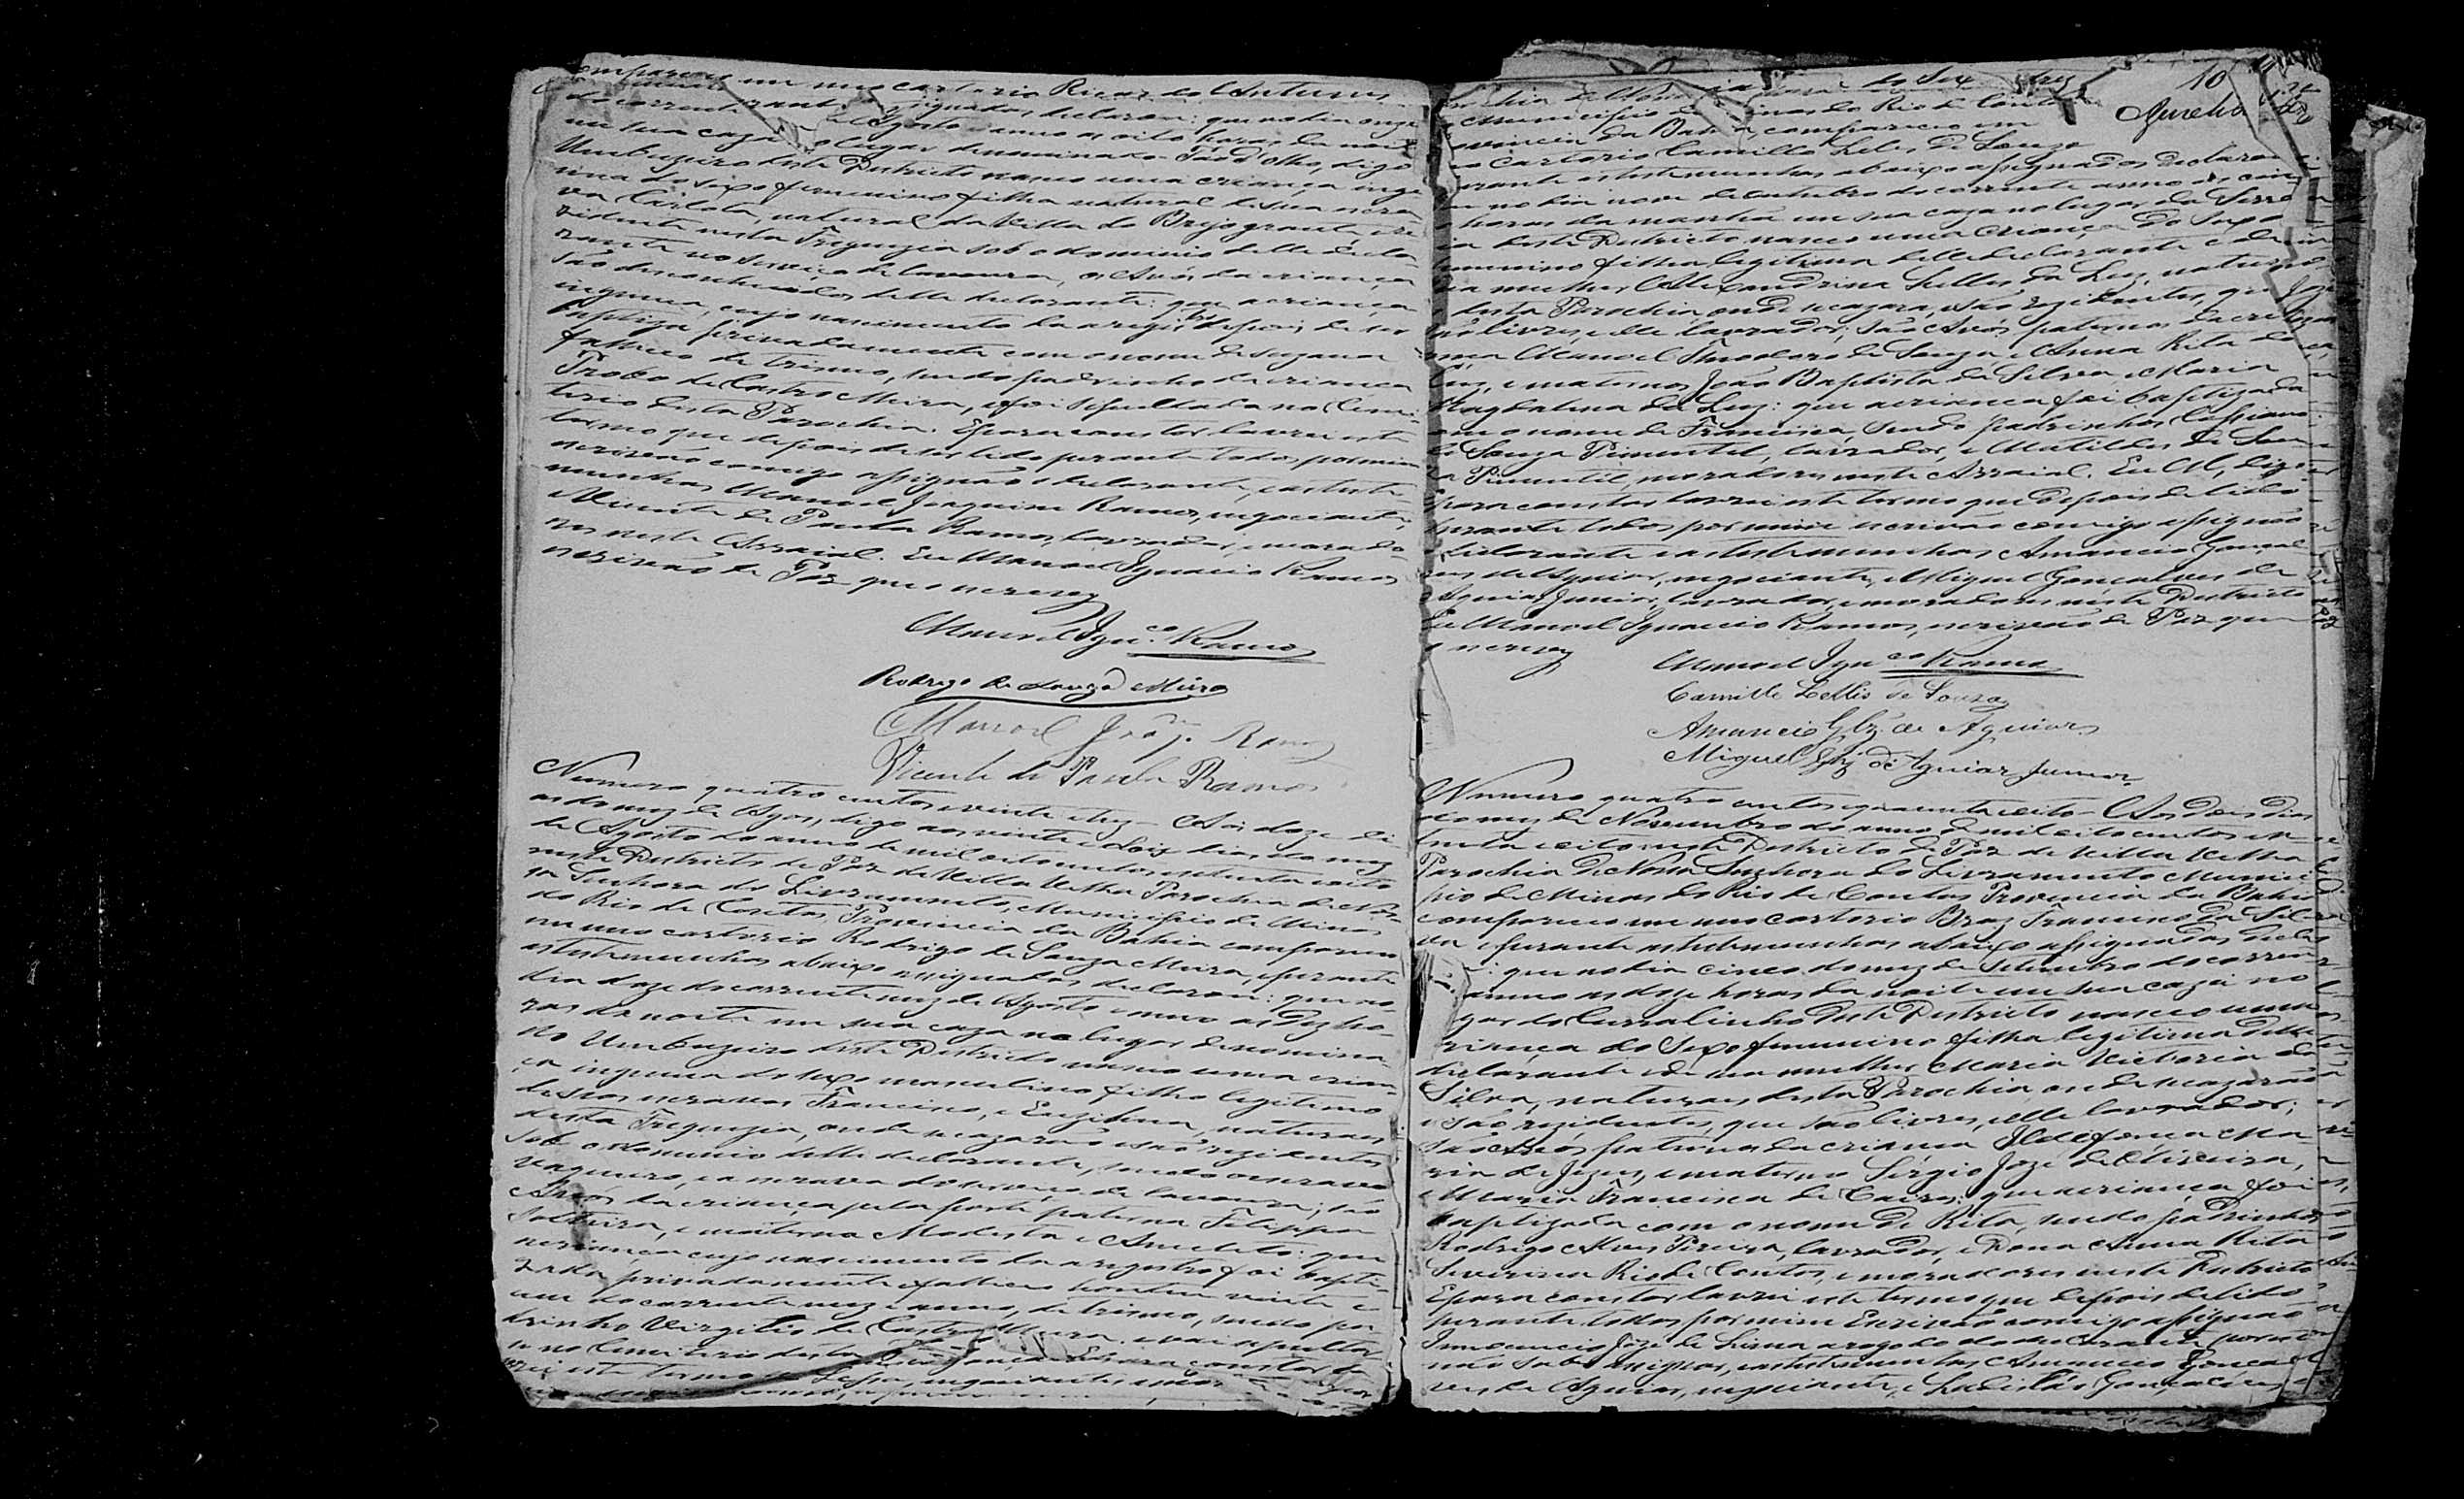 compareceu em meu cartorio
do corrente
em sua caza no lugar denominado Páo d'olho, digo
Umbuzeiro deste Districto nasceu uma criança inge-
nua do sexo femenino filha natural de sua escra
va Carlota, natural da Villa do Brejo grande e re
zidente nesta Freguezia sob o dominio delle decla-
rante no serviço de lavoura, os Avós da criança
são desconhecidos delle declarante: que a criança
ingenua, cujo nascimento da a regis depois de ser
baptiza privadamente com o nome de
falleceo de trismo, sendo padrinho da criança
de Castro Meira, e foi sepultada no Cemi-
terio desta Parochia. E para constar lavrei este
termo que depois de ser lido perante todos por mim
escrivão comigo assignão o declarante, e as teste-
munhas Manoel Joaquim Ramos, negociante,
Vicente de Paula Ramos, lavrador, e morado
res neste Arraial. Eu Manoel Ignacio Ramos
escrivão de Paz que o escrevy
Manoel Ign.co Ramos
Rodrigo de Souza Meira
Manoel Joaq.m Ramos
Vicente de Paula Ramos
Numero quatro centos e vinte e tres - Aos doze di
as do mez de Agos, digo aos vinte e dois dias do mez
de Agosto do anno de mil oito centos e setenta e oito
neste Districto de Paz de Villa Velha Parochia de Nos-
sa Senhora do Livramento, Municipio de Minas
do Rio de Contas, Provincia da Bahia compareceu
em meu cartorio Rodrigo de Souza Meira, e perante
as testemunhas abaixo assignadas declarou: que no
dia doze do corrente mez de Agosto e anno as dez ho-
ras da noite em sua caza no lugar denomina-
do Umbuzeiro deste Districto nasceu uma crian-
ça ingenua do sexo masculino filho legitimo
de seos escravos Francisco, e Euzebia, naturaes
desta Freguezia, onde se cazarão e são rezidentes
sob o dominio delle declarante, sendo o escravo
vaqueiro, e a escrava do serviço de lavoura; são
Avós da criança pela parte paterna Felippa
solteira, e materna Modesta e Anacleto: que
a criança cujo nascimento da a registro foi bapti-
zada privadamente e falleceo hontem vinte e
um do corrente mez e anno, de trismo, sendo pa-
drinho Virgilio de Castro Meira e vai sepultar
se no Cemiterio desta E para constar la
vrei este termo
10
Aurelio
Parochia de Nossa
Municipio de Minas do Rio de Contas
Provincia da Bahia compareceo em
meo cartorio Camillo Lelis de Souza
perante as testemunhas abaixo assignadas declarou
que no dia nove de outubro do corrente anno as cinco
horas da manhã em sua caza no lugar da Serra
deste Districto nasceo uma criança do sexo
femenino filha legitima delle declarante e de
sua mulher Alexandrina Lellis da Luz, naturaes
desta Parochia onde se cazara, e são rezidentes, que
são livres, e elle lavrador; são Avós paternos da cri
ança Manoel Theodoro de Souza e Anna Rita da
Luz, e maternos João Baptista da Silva e Maria
Magdalena da Luz: que a criança foi baptizada
com o nome de Francisca, sendo padrinhos Cassiano
de Souza Pimentel, lavrador, e Matildes de Sou
za Pimentel, moradores neste Arraial. Eu M, digo
para constar lavrei este termo que depois de lido
perante todos por mim escrivão comigo assignão
o declarante e as testemunhas Amancio Gonçal
ves de Aguiar, negociante, e Miguel Gonçalves de
Aguiar Junior, lavrador, e moradores neste Districto
Eu Manoel Ignacio Ramos, escrivão de Paz que
o escrevy
Manoel Ign.co Ramos
Camillo Lellis de Souza
Amancio Glz' de Aguiar
Miguel Glz' de Aguiar Junior
Numero quatro centos e quarenta e oito - Aos dois dias
do mez de Novembro do anno de mil oito centos e se
tenta e oito neste Districto de Paz de Villa Velha
Parochia de Nossa Senhora do Livramento Munici
pio de Minas do Rio de Contas Provincia da Bahia
compareceo em meo cartorio Braz Francisco da Sil
va e perante as testemunhas abaixo assignadas decla
: que no dia cinco do mez de Setembro do corren
anno as doze horas da noite em sua caza no
gar do Curralinho deste Districto nasceo uma
criança do sexo femenino filha legitima delle
declarante e de sua mulher Maria Victoria da
Silva, naturaes desta Parochia onde se cazarão
e são rezidentes, que são livres, e elle lavrador;
são Avós paternos da criança Ildefonça Ma
ria de Jezus, e materno Sérgio Joze de Oliveira,
e Maria Francisca de Caires: que a criança foi
baptizada com o nome de Rita, sendo padrinhos
Rodrigo Alves Pereira, lavrador, e Dona Anna Rita
Severina Rio de Contas, e moradores neste Districto
E para constar lavrei este termo que depois de lido
perante todos por mim Escrivão comigo assignão
Innocencio Joze de Lima a rogo do declarante por
não saber assignar, e as testemunhas Amancio Gonçal
ves de Aguiar, negociante, e Ladislão Gonçalves